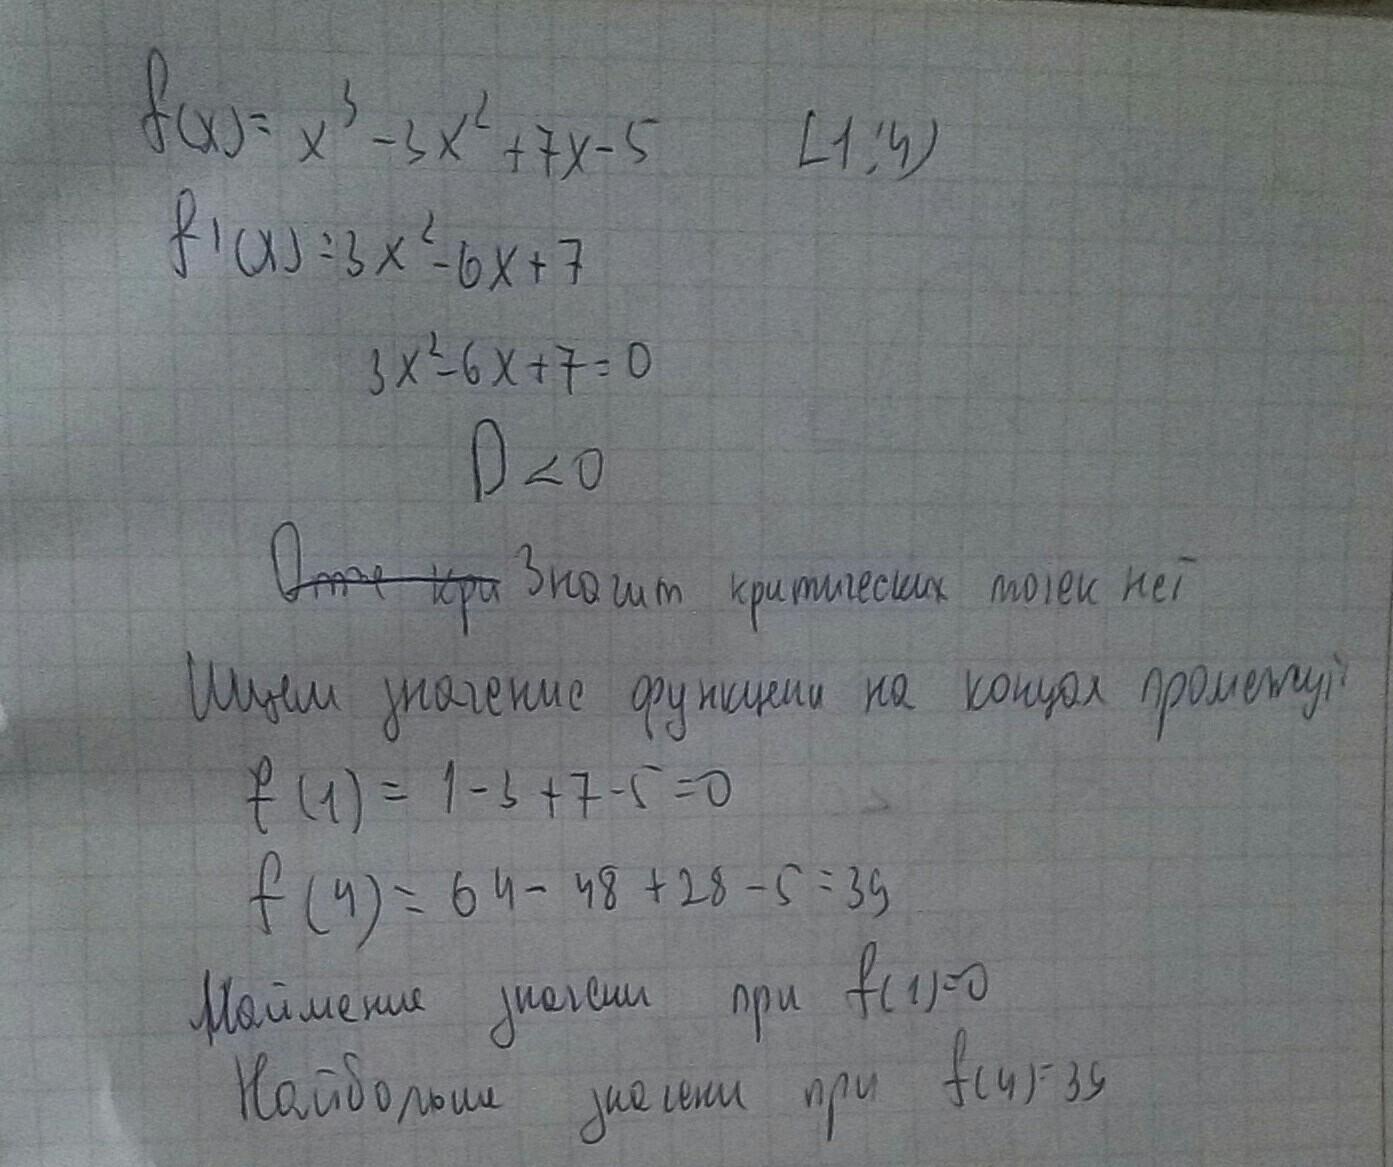 f(x)= x³-3x²+7x-5 [1;4)
f'(x)=3x²-6x+7
3x²-6x+7=0
D<0
Значит критических точек нет
Ищем значение функции на концах промежу
f(1)= 1-3+7-5=0
f(4)= 64-48+28-5=39
Наймение значени при f(1)=0
Найбольше значени при f(4)=39